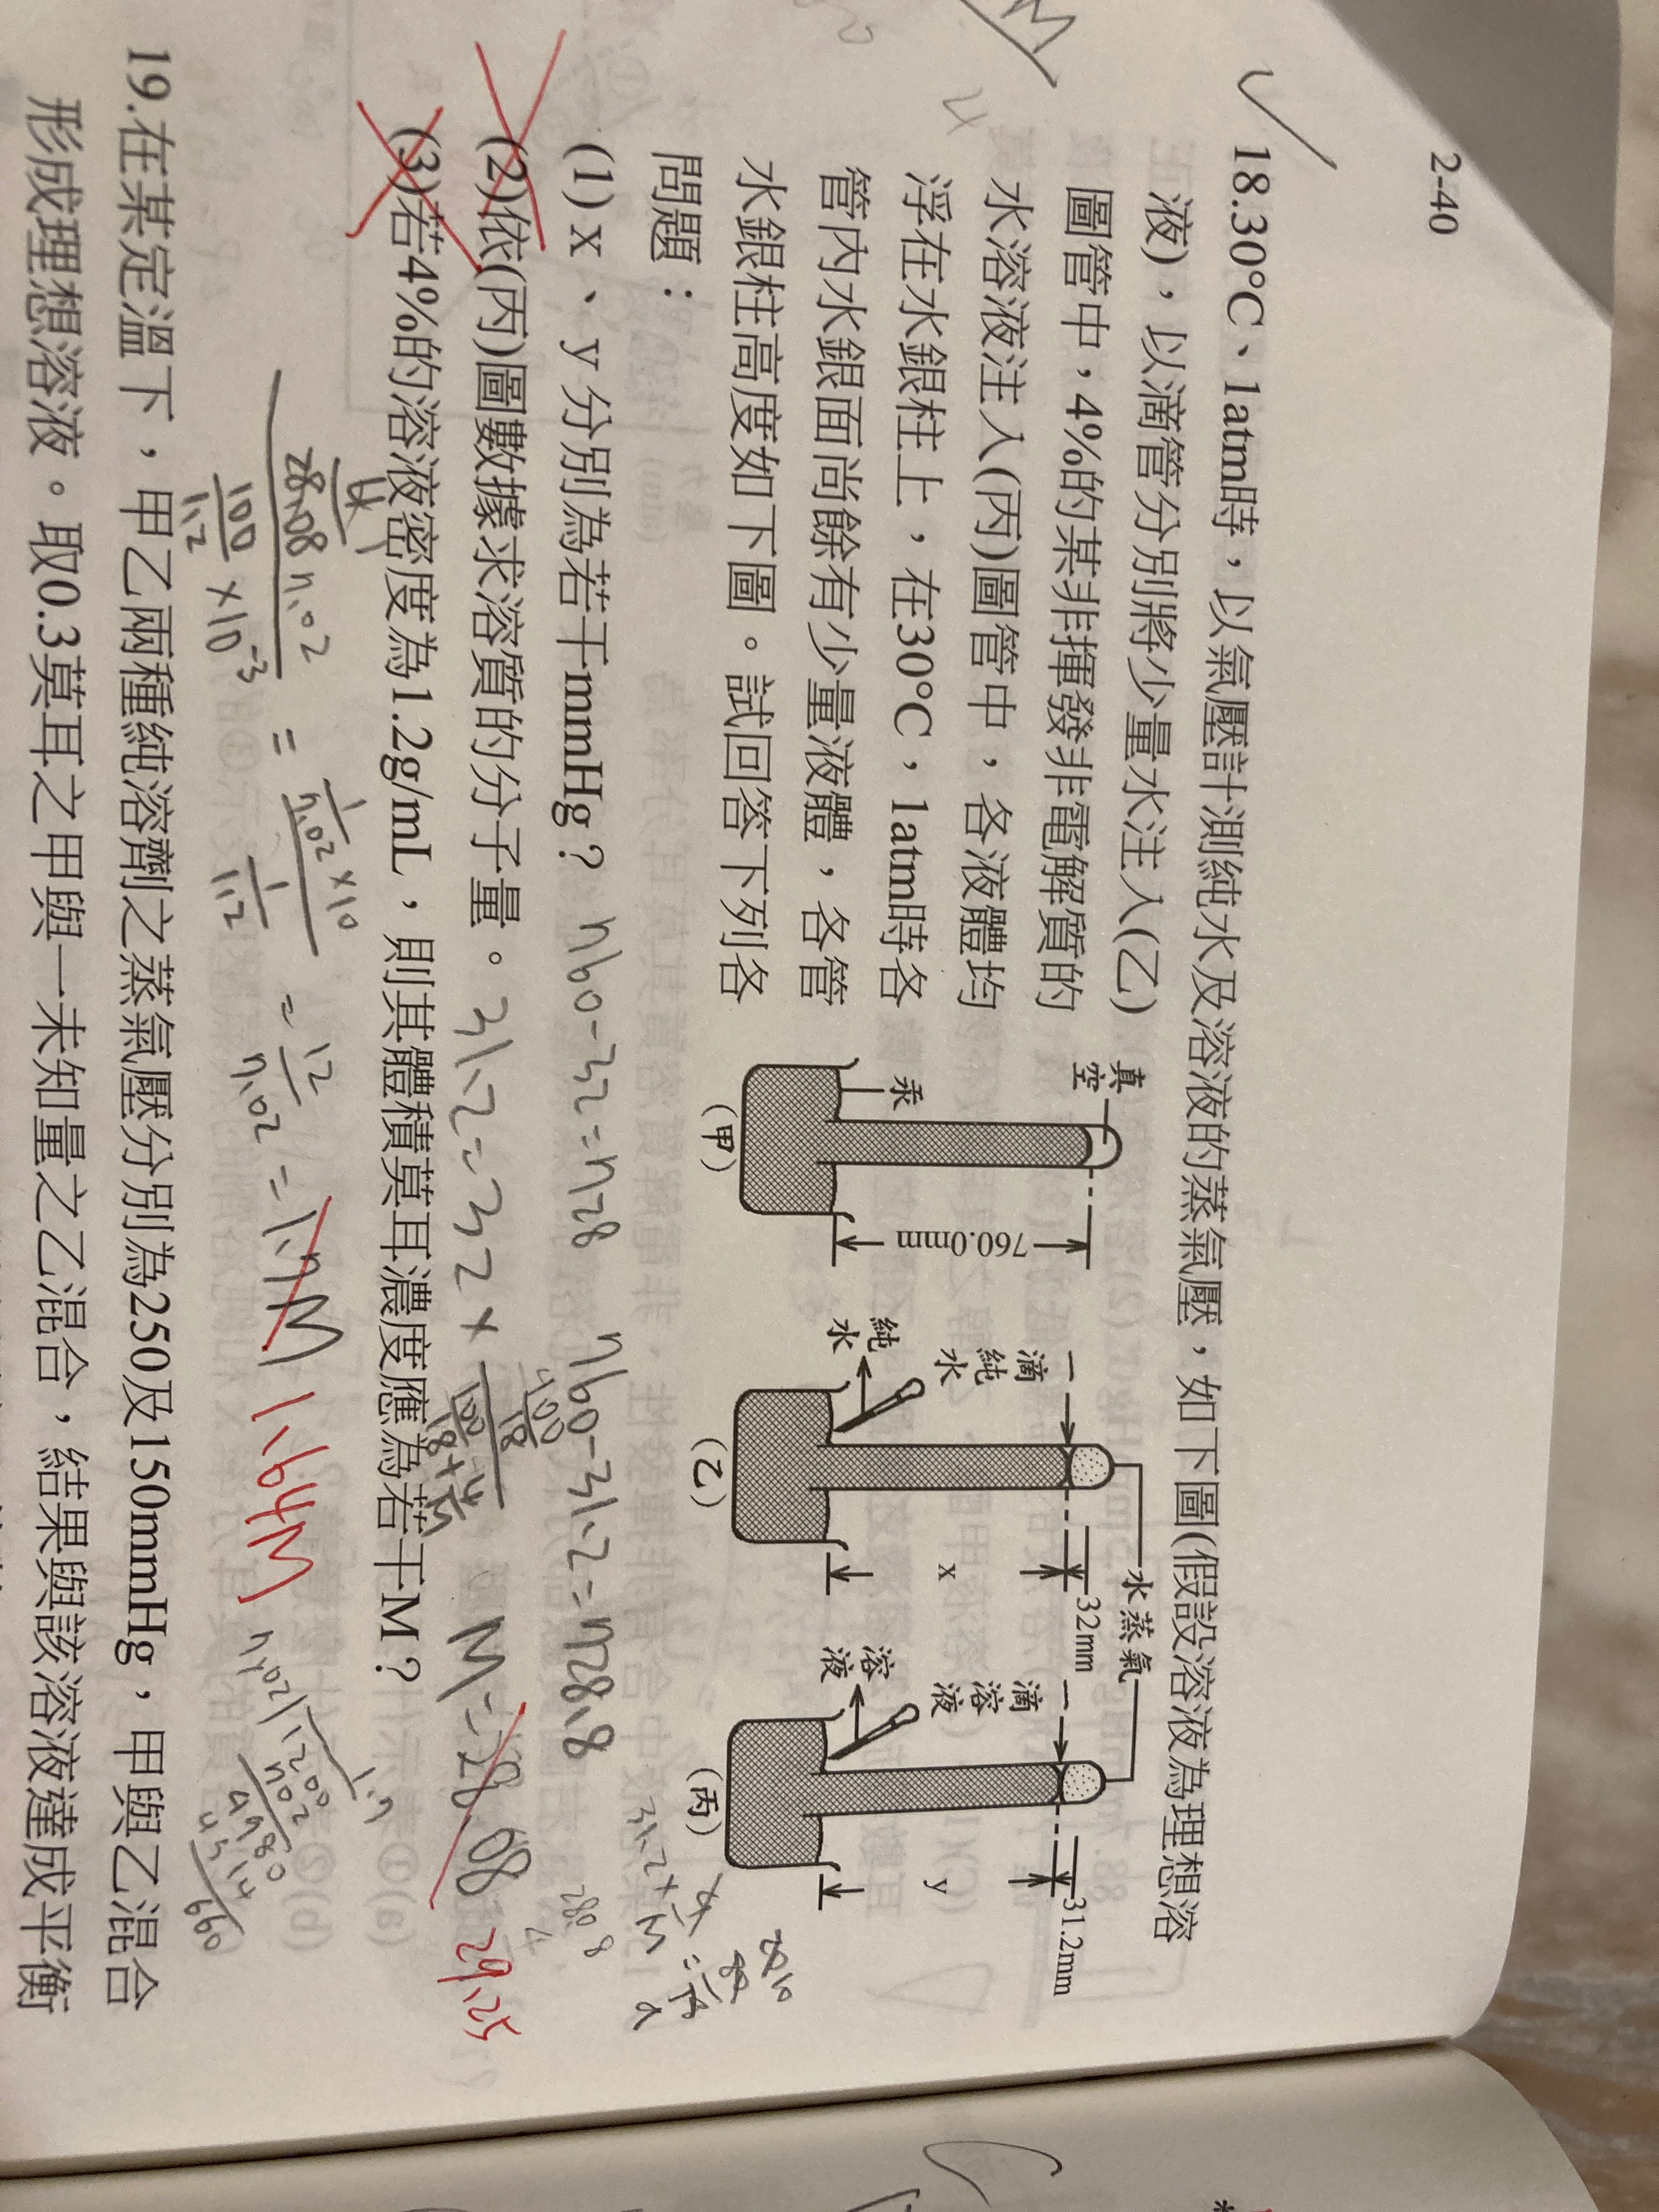 2-40
18.30°C、1atm時，以氣壓計測純水及溶液的蒸氣壓，如下圖(假設溶液為理想溶
液)，以滴管分別將少量水注入(乙)
圖管中，4%的某非揮發非電解質的
水溶液注入(丙)圖管中，各液體均
浮在水銀柱上，在30°C，1atm時各
管內水銀面尚餘有少量液體，各管
水銀柱高度如下圖。試回答下列各
問題：
真空
汞
760.0mm
(甲)
一滴純水
純水
x
32mm
(乙)
水蒸氣
一滴溶液
溶液
y
31.2mm
(丙)
(1) x、y 分別為若干mmHg？
760-32=728
760-31.2=728.8
(2)依(丙)圖數據求溶質的分子量。
31.2=32×
M=28.08
29.25
(3)若4%的溶液密度為1.2g/mL，則其體積莫耳濃度應為若干M？
1.7M
1.64M
19.在某定溫下，甲乙兩種純溶劑之蒸氣壓分別為250及150mmHg，甲與乙混合
形成理想溶液。取0.3莫耳之甲與一未知量之乙混合，結果與該溶液達成平衡